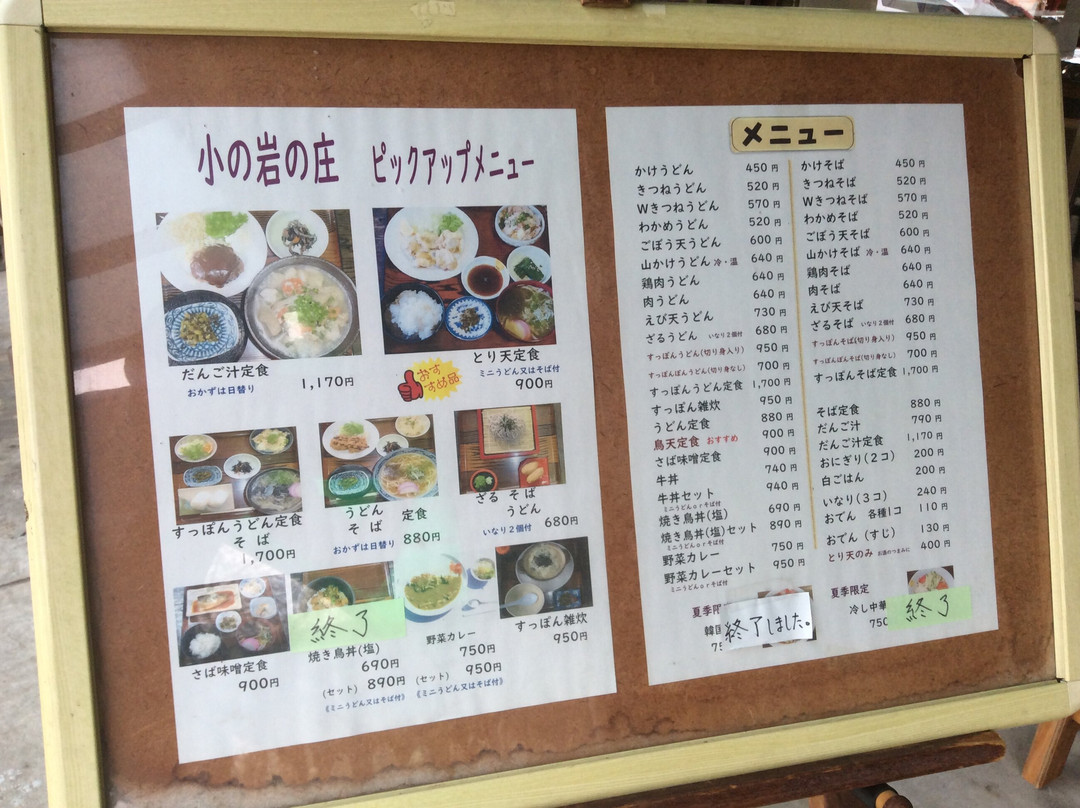 小の岩の庄 ピックアップメニュー
だんご汁定食
おかずは日替り
1,170円
おすすめ品
とり天定食
ミニうどん又はそば付
900円
すっぽんうどん定食
そ ば
1,700円
うどん 定食
そ ば
おかずは日替り 880円
ざる そば
うどん
いなり2個付 680円
さば味噌定食
900円
終了
焼き鳥丼(塩)
690円
(セット) 890円
《ミニうどん又はそば付》
野菜カレー
750円
(セット) 950円
《ミニうどん又はそば付》
すっぽん雑炊
950円
メニュー
かけうどん 450円
きつねうどん 520円
Wきつねうどん 570円
わかめうどん 520円
ごぼう天うどん 600円
山かけうどん 冷・温 640円
鶏肉うどん 640円
肉うどん 640円
えび天うどん 730円
ざるうどん いなり2個付 680円
すっぽんうどん(切り身入り) 950円
すっぽんぽんうどん(切り身なし) 700円
すっぽんうどん定食 1,700円
すっぽん雑炊 950円
うどん定食 880円
鳥天定食 おすすめ 900円
さば味噌定食 900円
牛丼 740円
牛丼セット 940円
ミニうどんorそば付
焼き鳥丼(塩) 690円
焼き鳥丼(塩)セット 890円
ミニうどんorそば付
野菜カレー 750円
野菜カレーセット 950円
ミニうどんorそば付
夏季限
韓国
終了しました。
かけそば 450円
きつねそば 520円
Wきつねそば 570円
わかめそば 520円
ごぼう天そば 600円
山かけそば 冷・温 640円
鶏肉そば 640円
肉そば 640円
えび天そば 730円
ざるそば いなり2個付 680円
すっぽんそば(切り身入り) 950円
すっぽんぽんそば(切り身なし) 700円
すっぽんそば定食 1,700円
そば定食 880円
だんご汁 790円
だんご汁定食 1,170円
おにぎり(2コ) 200円
白ごはん 200円
いなり(3コ) 240円
おでん 各種1コ 110円
おでん (すじ) 130円
とり天のみ お酒のつまみに 400円
夏季限定
冷し中華
750
終了